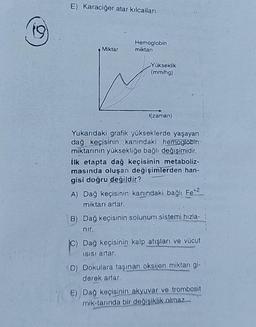 E) Karaciğer atar kılcalları
19
Hemoglobin
Miktar miktarı
Yükseklik
(mm/hg)
t(zaman)
Yukarıdaki grafik yükseklerde yaşayan
dağ keçisinin kanındaki hemoglobin
miktarının yüksekliğe bağlı değişimidir.
İlk etapta dağ keçisinin metaboliz-
masında oluşan değişimlerden han-
gisi doğru değildir?
A) Dağ keçisinin kanındaki bağlı Fe+2
miktarı artar.
B) Dağ keçisinin solunum sistemi hızla-
nır.
C) Dağ keçisinin kalp atışları ve vücut
ısısı artar.
D) Dokulara taşınan oksijen miktarı gi-
derek artar.
E) Dağ keçisinin akyuvar ve trombosit
mik-tarında bir değişiklik olmaz.